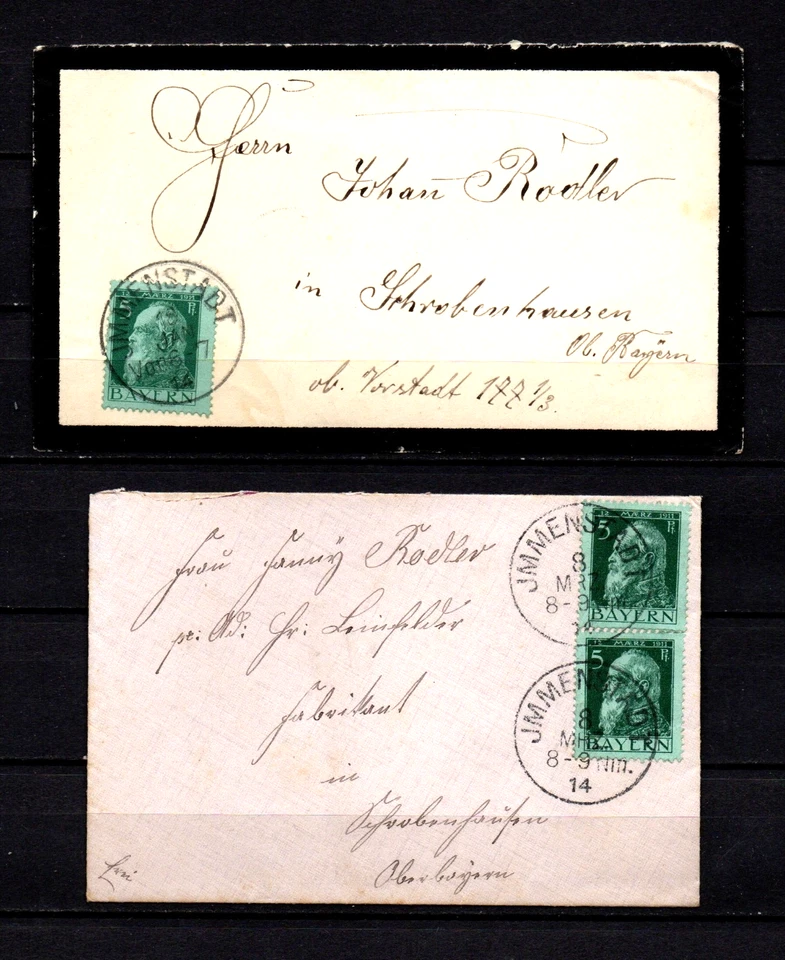 Herrn
Johann Rodler
in Schrobenhausen
Ob. Bayern
ob. Vorstadt 177 1/3.
IMMENSTADT
5 12 MÆRZ 1911 Pf
Vorm.
14
BAYERN
Frau Fanny Rodler
pr: Ad: Hr: Leinfelder
Fabrikant
in
Schrobenhausen
Oberbayern
JMMENSTADT
8
MRZ
8-9 Nm.
14
5 12 MÆRZ 1911 Pf
BAYERN
JMMENSTADT
8
MRZ
8-9 Nm.
14
5 12 MÆRZ 1911 Pf
BAYERN